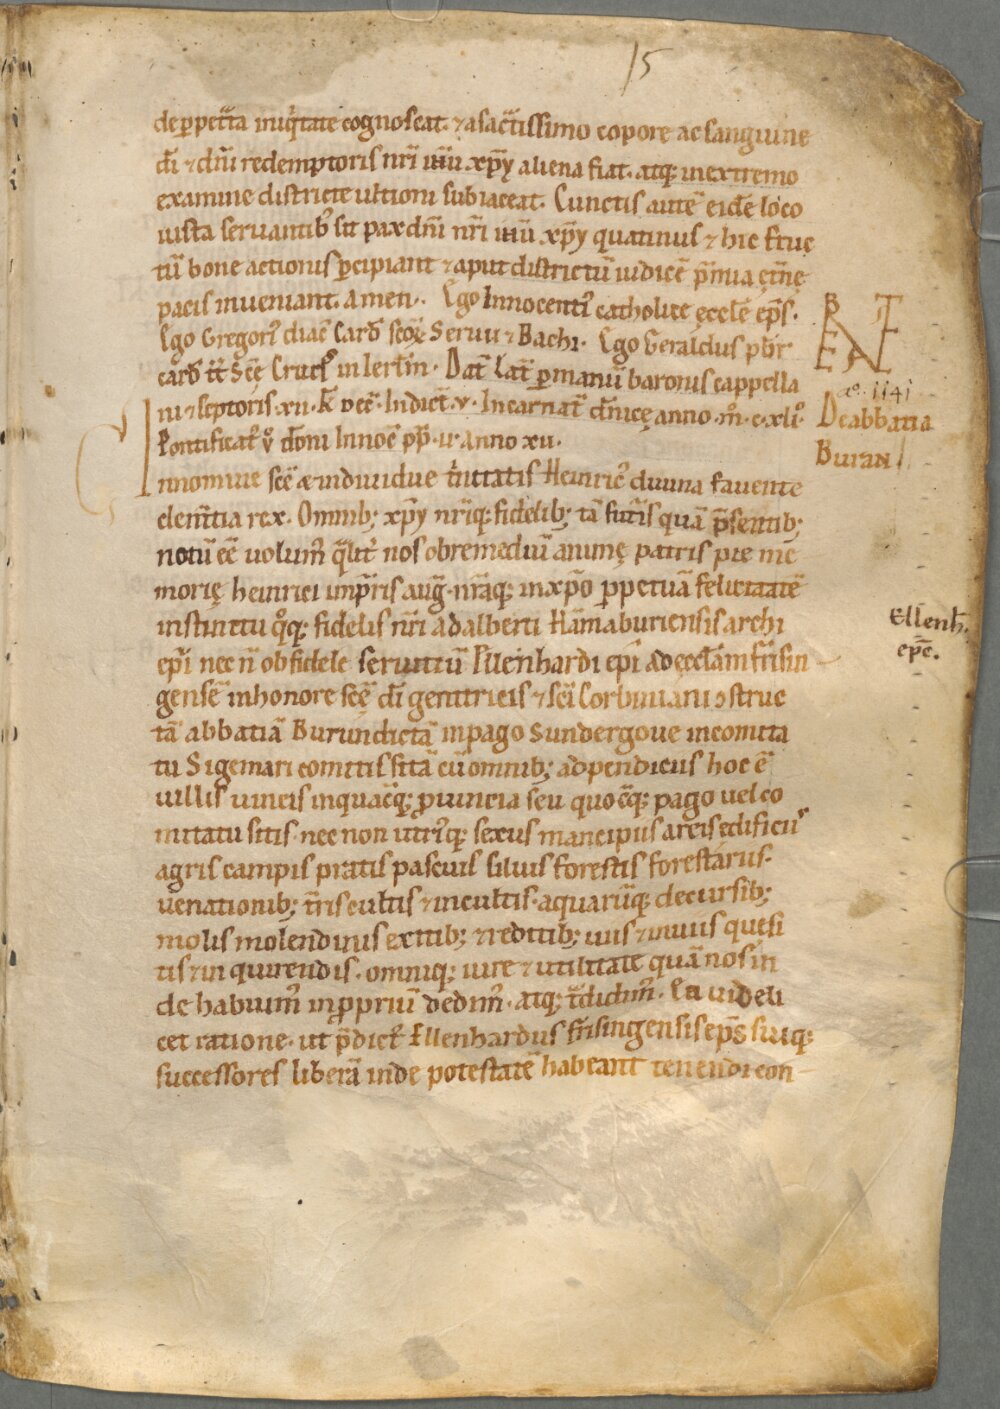 15
de ꝑpetᷓta iniqͥtate cognoscat. ⁊ a sacᷓtissimo copore ac sanguine
dī ⁊ dn̄i redemptoris nrī iħu xp̄y aliena fiat. atq; in extremo
examine districte ultioni subiaceat. Cunctis autē eidē loco
iusta seruantibꝰ sit pax dn̄i nrī iħu xp̄y quatinus ⁊ hic fruc
tū bone actionis ꝑcipiant ⁊ aput districtū iudicē p̄mia ęt̄nę
pacis inueniant. Amen. Ego Innocentiꝰ catholice ęcclę̄ ep̄s.
Ego Gregoriꝰ diac̄ card̄ sc̄oꝝ Seruii ⁊ Bachi. Ego Geraldus pb̄r
card̄ tī̄t Sc̄ę Crucis in Ierl̄m. Dat̄ Lat̄ ꝑ manū baronis cappella
ni ⁊ sc̄ptoris. xii. k̄l dec̄. Indict̄. v. Incarnat̄ dn̄icę anno. m̊. c. xli̊.
Pontificat̄ v̊ domni Innoc̄ pp̄. ii. Anno xii.
BENTE
aͦ. 1141
De abbatia
Buran
In nomine sc̄ę ⁊ indiuidue t̄nitatis Heinricꝰ diuina fauente
clem̄tia rex. Omnib; xp̄y nrīq; fidelib; tā futᷓis quā p̄sentib;
notū eē uolumꝰ qᷓlitꝰ nos ob remediū animę patris pie me
morię heinrici imp̄ris auḡ. nrᷓāq; in xp̄o ꝑpetuā felicitatē
instinctu qͦq; fidelis nrī adalberti Hāmaburiensis archi
ep̄i nec n̄ ob fidele seruitiū Ellenhardi ep̄i ad ęcclām frisin
gensē in honore sc̄ę dī genitricis ⁊ sc̄i Corbiniani ꝯstruc
tā abbatiā Burun dictā in pago Sundergoue in comita
tu Sigemari comitis sitā cū omnib; adpendiciis hoc ē
uillis uineis in quacq; ꝓuincia seu quocq; pago uel co
mitatu sitis. nec non utͥusq; sexus mancipiis areis ędificiis
agris campis pratis pascuis siluis forestis forestariis.
uenationib; t̄ris cultis ⁊ incultis. aquarūq; decursib;
molis molendinis exitib; ⁊ reditib; uiis ⁊ inuiis quęsi
tis ⁊ inquirendis. omniq; iure ⁊ utilitate quā nos in
de habuimꝰ in ꝓpriū dedimꝰ. atq; tᷓdidimꝰ. Ea uideli
cet ratione. ut p̄dictꝰ Ellenhardus frisingensis ep̄s suiq;
successores liberā inde potestatē habeant tenendi con
Ellenh̄.
ep̄c.